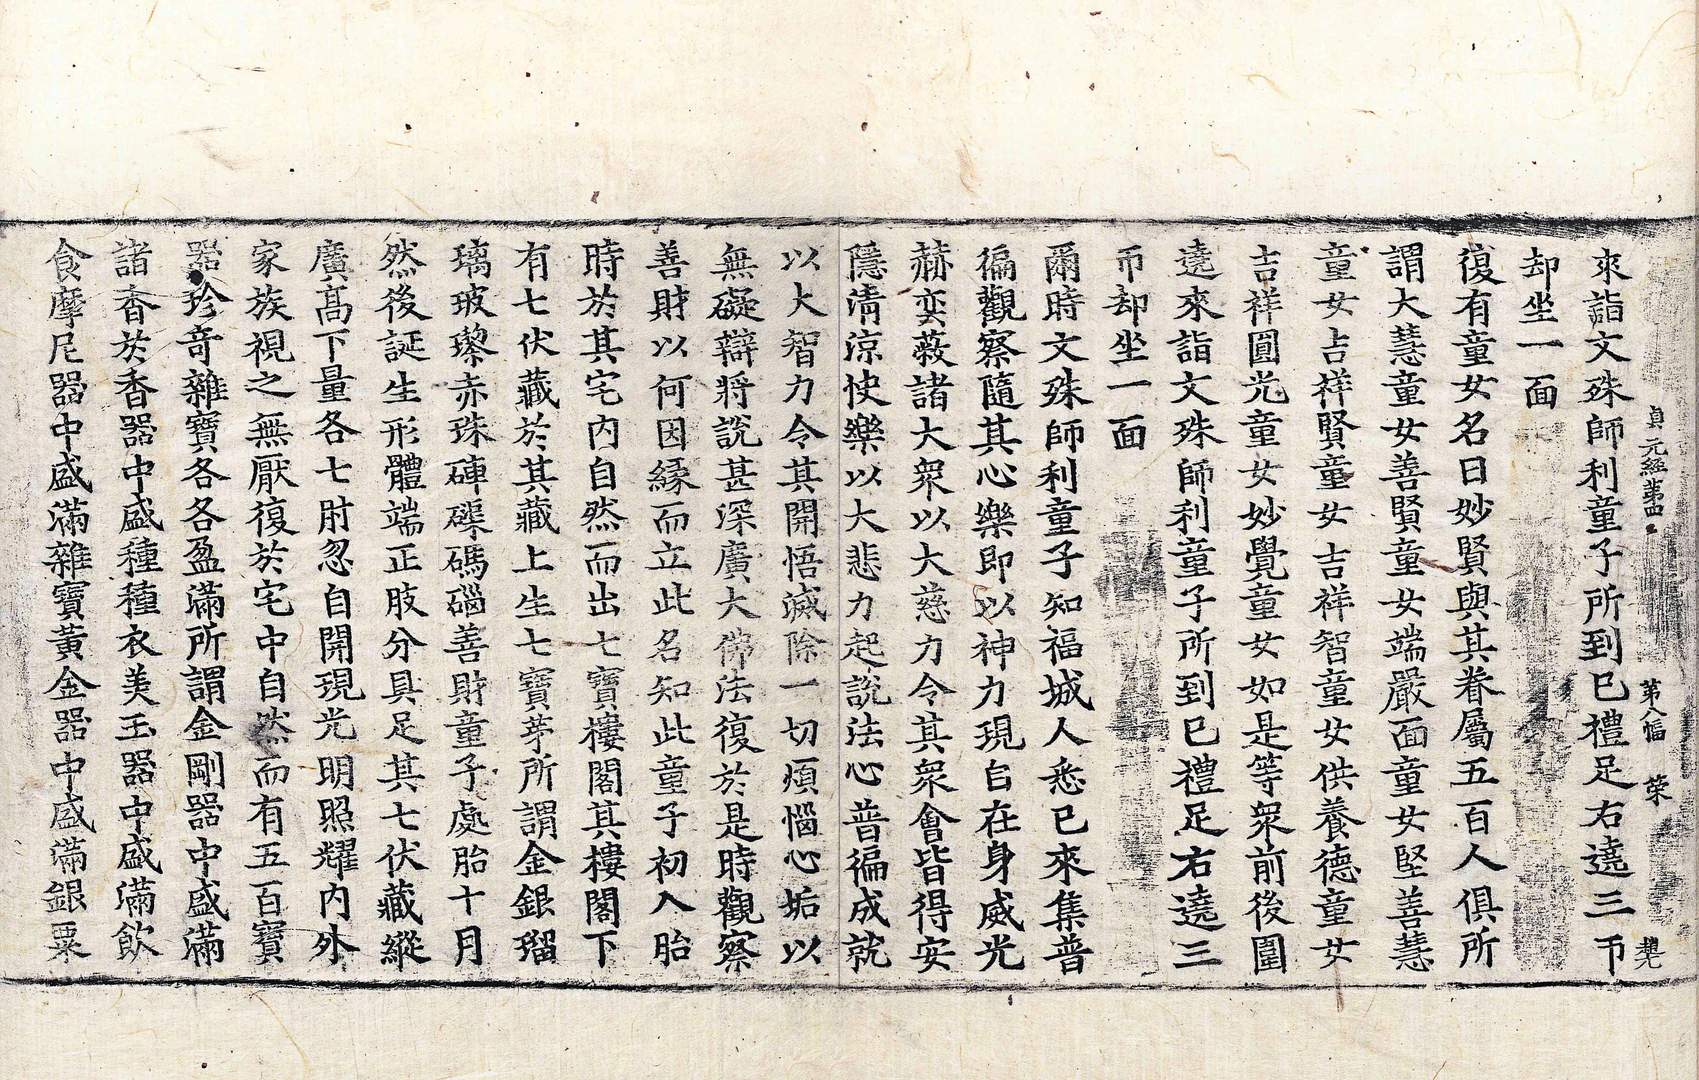 貞元經第四 第八幅 榮
來詣文殊師利童子所到已禮足右遶三帀
却坐一面
復有童女名曰妙賢與其眷屬五百人俱所
謂大慧童女善賢童女端嚴面童女堅善慧
童女吉祥賢童女吉祥智童女供養德童女
吉祥圓光童女妙覺童女如是等衆前後圍
遶來詣文殊師利童子所到已禮足右遶三
帀却坐一面
爾時文殊師利童子知福城人悉已來集普
徧觀察隨其心樂即以神力現自在身威光
赫奕蔽諸大衆以大慈力令其衆會皆得安
隱清涼快樂以大悲力起說法心普徧成就
以大智力令其開悟滅除一切煩惱心垢以
無礙辯將說甚深廣大佛法復於是時觀察
善財以何因緣而立此名知此童子初入胎
時於其宅內自然而出七寶樓閣其樓閣下
有七伏藏於其藏上生七寶芽所謂金銀瑠
璃玻瓈赤珠硨磲碼碯善財童子處胎十月
然後誕生形體端正肢分具足其七伏藏縱
廣高下量各七肘忽自開現光明照耀內外
家族視之無厭復於宅中自然而有五百寶
器珍奇雜寶各各盈滿所謂金剛器中盛滿
諸香於香器中盛種種衣美玉器中盛滿飮
食摩尼器中盛滿雜寶黃金器中盛滿銀粟